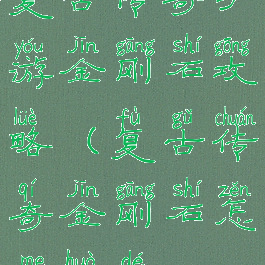 复古传奇手
yóu jīn gāng shí gōng
游金刚石攻
lüè fù gǔ chuán
略（复古传
qí jīn gāng shí zěn
奇金刚石怎
me huà dé